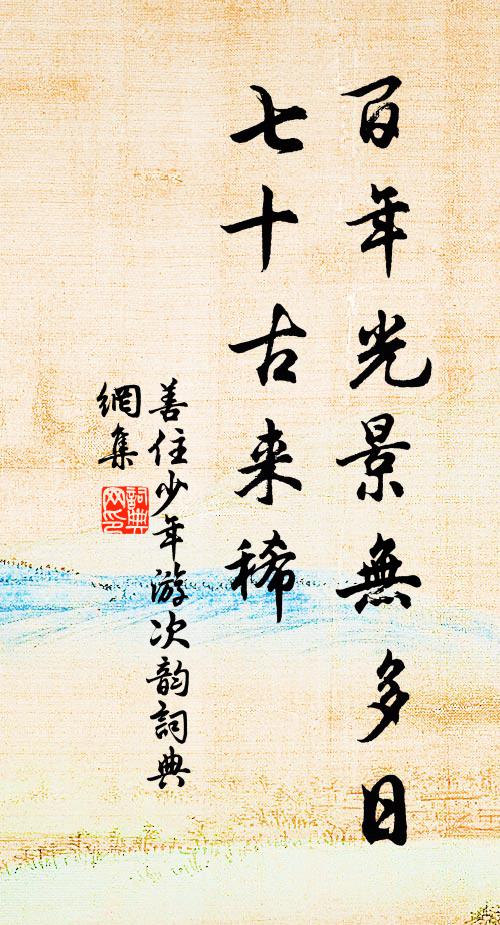 百年光景無多日
七十古来稀
善住少年游次韵詞典
網集
詞典
网印